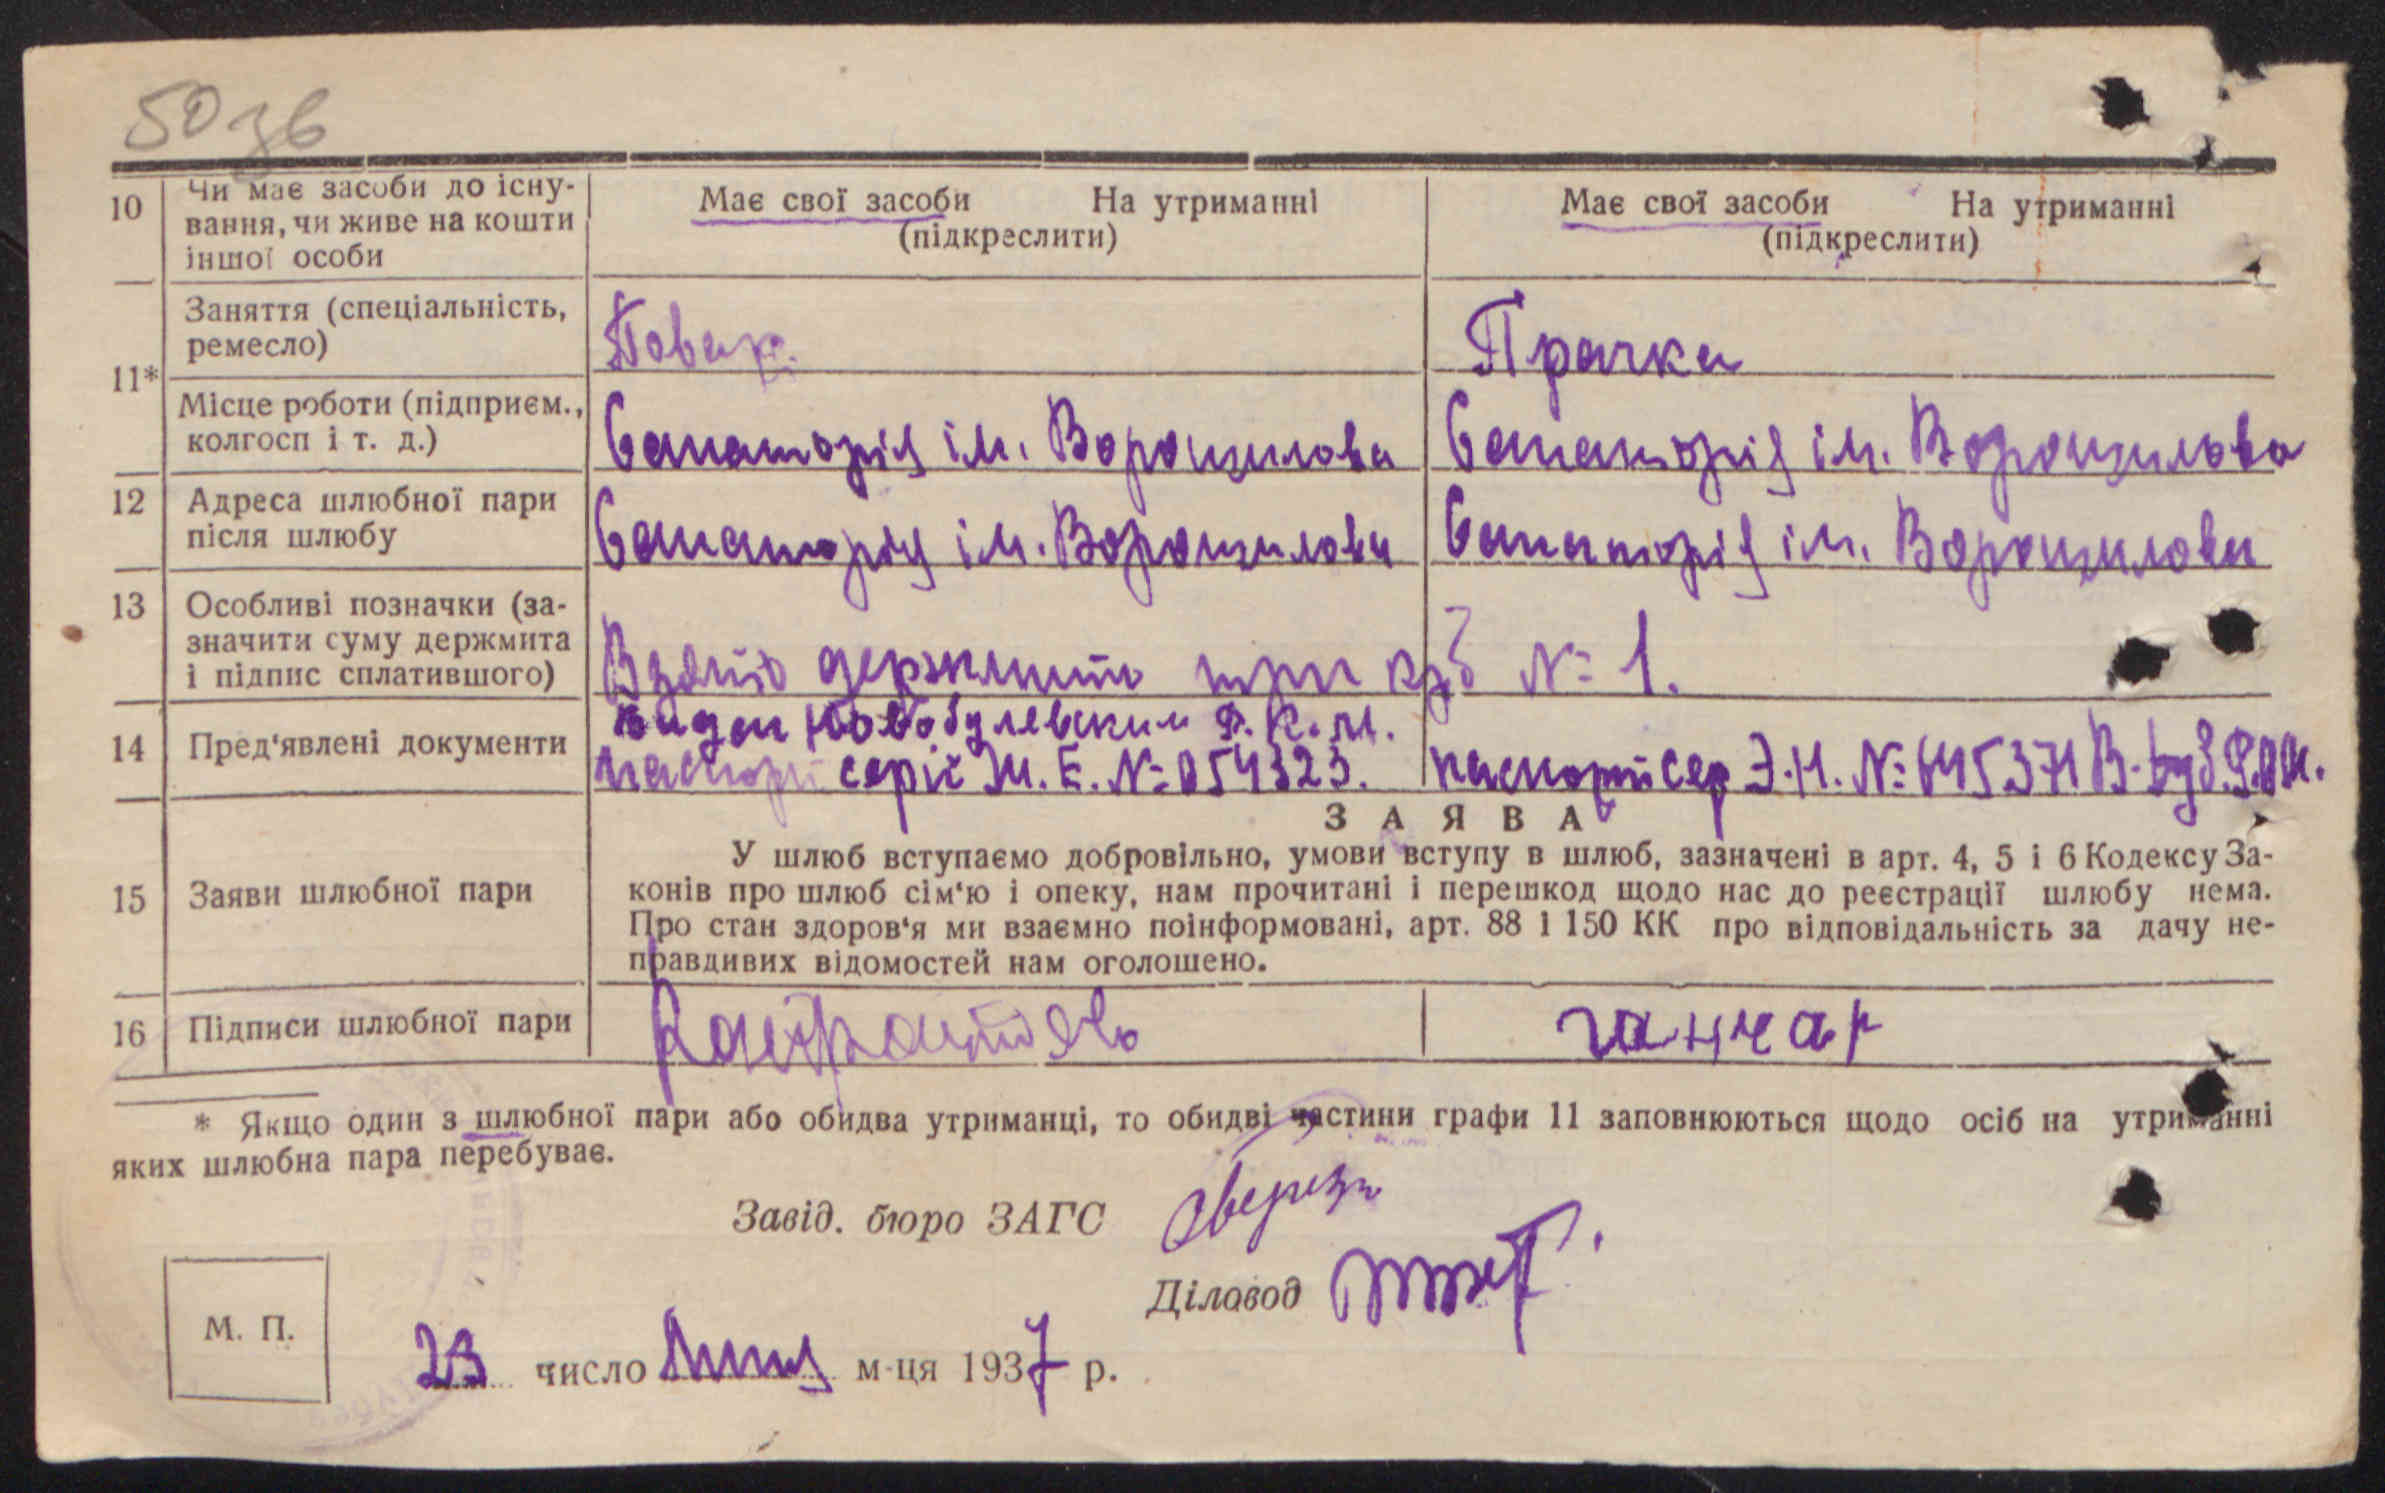 50 зв
10 Чи має засоби до існу- Має свої засоби На утриманні Має свої засоби На утриманні
вання, чи живе на кошти (підкреслити) (підкреслити)
іншої особи
11* Заняття (спеціальність, Повар. Прачка
ремесло)
Місце роботи (підприєм., Санаторія ім. Ворошилова Санаторія ім. Ворошилова
колгосп і т. д.)
12 Адреса шлюбної пари Санаторія ім. Ворошилова Санаторія ім. Ворошилова
після шлюбу
13 Особливі позначки (за-
значити суму держмита Взято держмито три крб № 1.
і підпис сплатившого)
Р. К. М.
14 Пред'явлені документи паспорт серіє Ж. Е. № 054323. паспорт сер Э. Н. № 645371
З А Я В А
15 Заяви шлюбної пари
У шлюб вступаємо добровільно, умови вступу в шлюб, зазначені в арт. 4, 5 і 6 Кодексу За-
конів про шлюб сім'ю і опеку, нам прочитані і перешкод щодо нас до реєстрації шлюбу нема.
Про стан здоров'я ми взаємно поінформовані, арт. 88 і 150 КК про відповідальність за дачу не-
правдивих відомостей нам оголошено.
16 Підписи шлюбної пари ганчар
* Якщо один з шлюбної пари або обидва утриманці, то обидві частини графи 11 заповнюються щодо осіб на утриманні
яких шлюбна пара перебуває.
Завід. бюро ЗАГС
Діловод
М. П.
23 число Липня м-ця 1937 р.